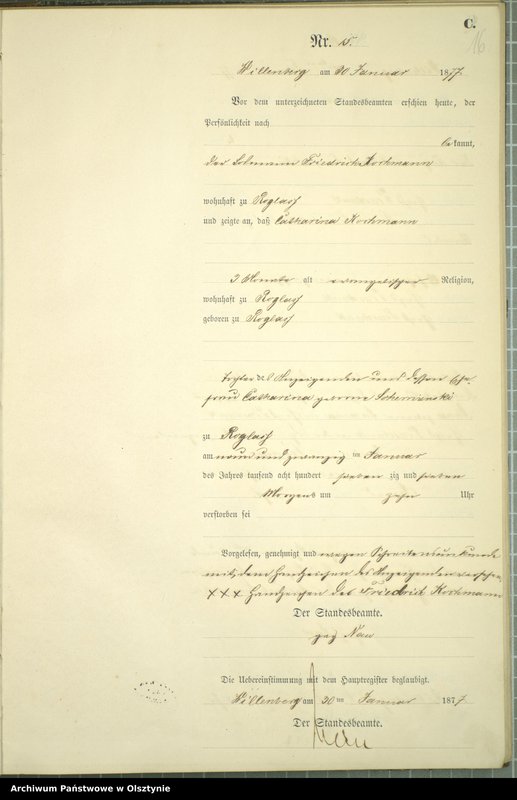 C.
16.
Nr. 15.
Willenberg am 30 Januar 1877.
Vor dem unterzeichneten Standesbeamten erschien heute, der
Persönlichkeit nach
bekannt,
der Losmann Friedrich Kochmann
wohnhaft zu Roglass
und zeigte an, daß Catharina Kochmann
3 Monate alt evangelischer Religion,
wohnhaft zu Roglass
geboren zu Roglass
Tochter des Anzeigenden und dessen Ehe-
frau Catharina geborene
zu Roglass
am neun und zwanzig ten Januar
des Jahres tausend acht hundert sieben zig und sieben
Morgens um zehn Uhr
verstorben sei
Vorgelesen, genehmigt und wegen Schreibensunkunde
mit dem Handzeichen des Anzeigenden versehen.
+++ Handzeichen des Friedrich Kochmann
Der Standesbeamte.
gez Nau
Die Uebereinstimmung mit dem Hauptregister beglaubigt.
Willenberg am 30 ten Januar 1877
Der Standesbeamte.
Nau
Archiwum Państwowe w Olsztynie